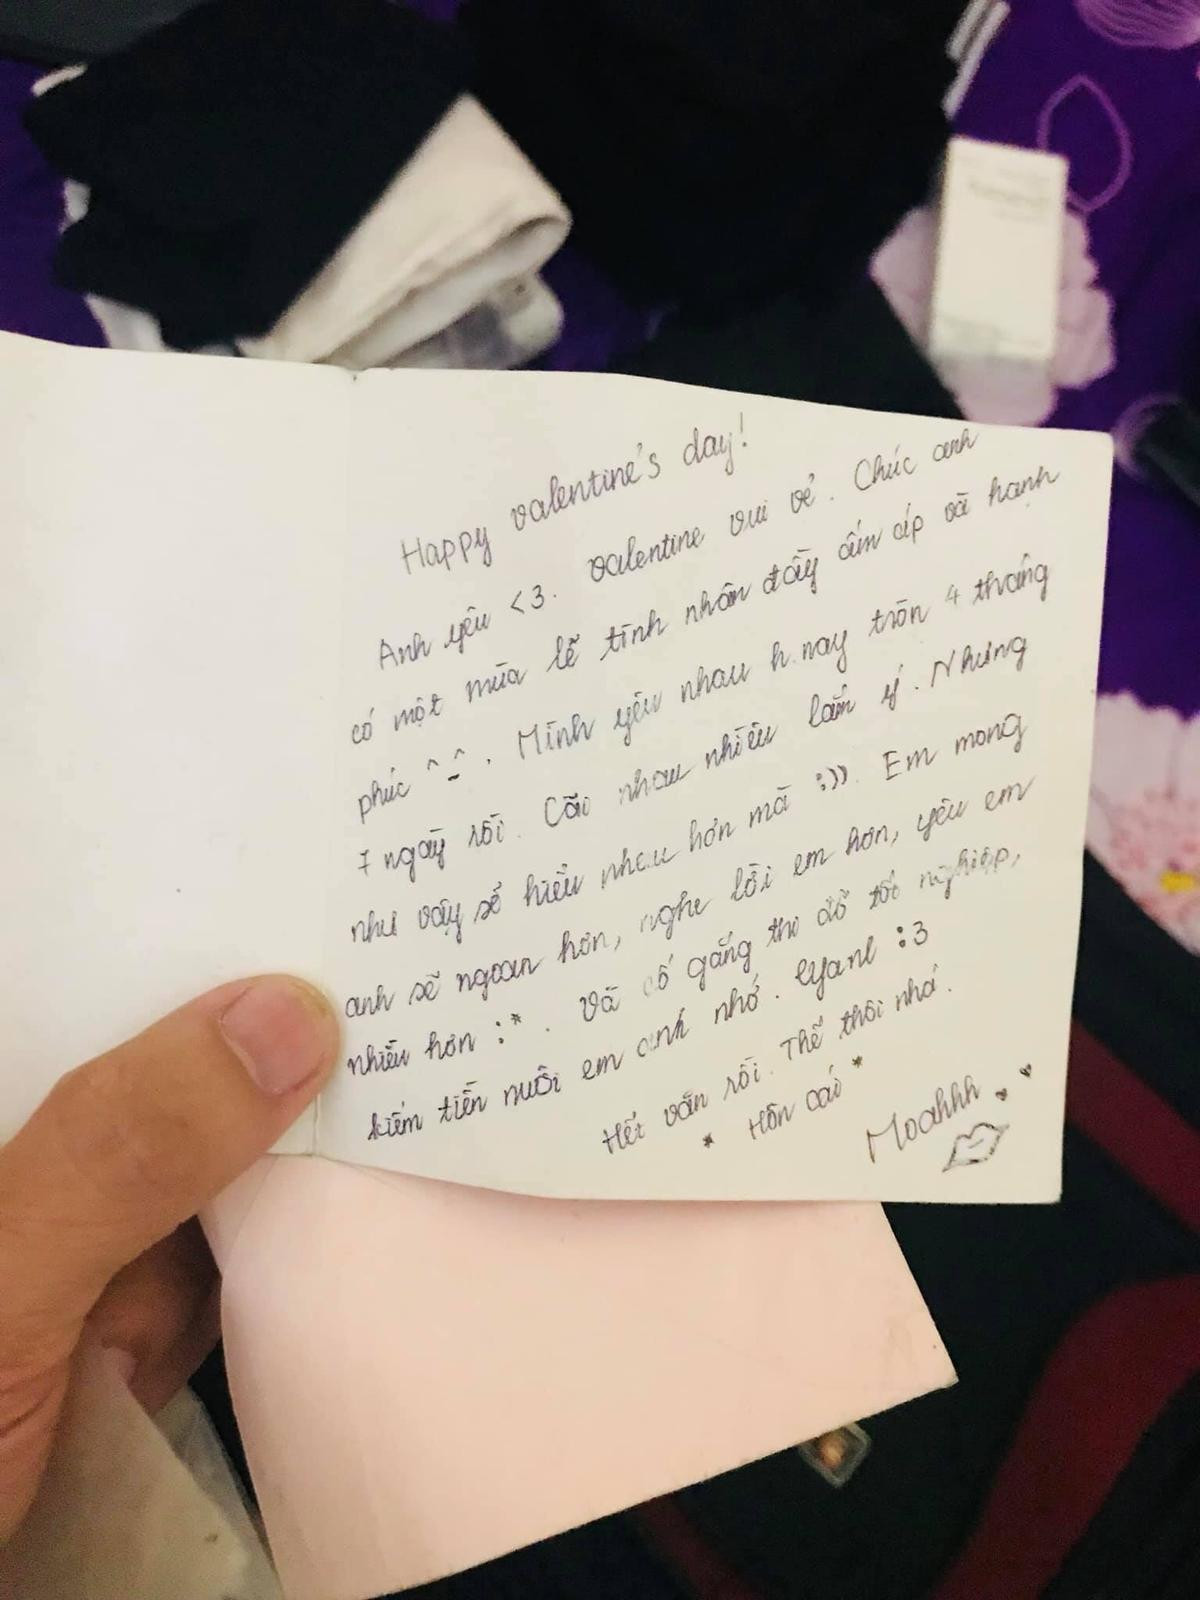 Happy valentine's day!
Anh yêu <3. Valentine vui vẻ. Chúc anh
có một mùa lễ tình nhân đầy ấm áp và hạnh
phúc ^_^. Mình yêu nhau h.nay tròn 4 tháng
7 ngày rồi. Cãi nhau nhiều lắm ý. Nhưng
như vậy sẽ hiểu nhau hơn mà :)). Em mong
anh sẽ ngoan hơn, nghe lời em hơn, yêu em
nhiều hơn :*. Và cố gắng thi đỗ tốt nghiệp,
kiếm tiền nuôi em anh nhớ. :3
Hết văn rồi. Thế thôi nhá.
* Hôn cái *
Moahhh